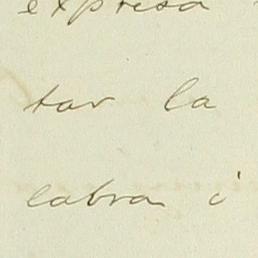 expresa
tar la
labra i